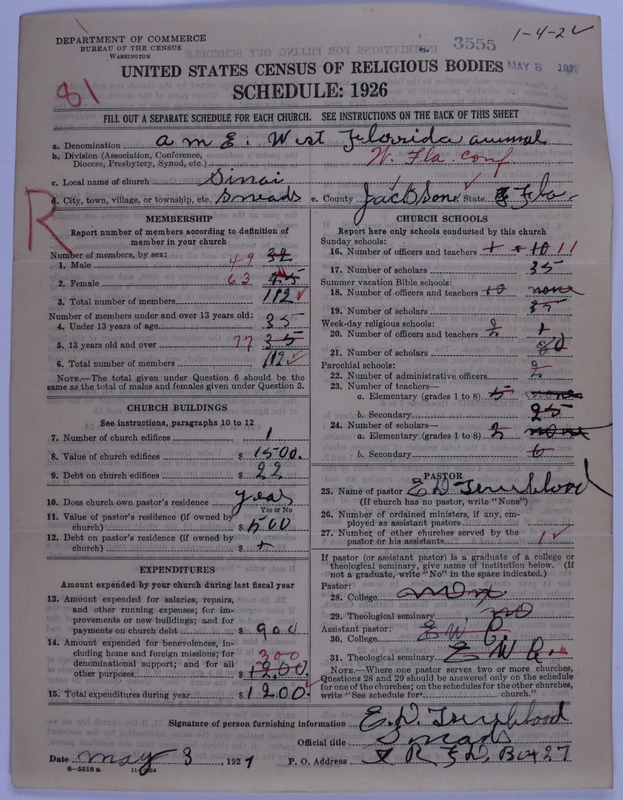 DEPARTMENT OF COMMERCE
BUREAU OF THE CENSUS
WASHINGTON
3555
1-4-2
MAY 3 192
UNITED STATES CENSUS OF RELIGIOUS BODIES
SCHEDULE: 1926
81
FILL OUT A SEPARATE SCHEDULE FOR EACH CHURCH. SEE INSTRUCTIONS ON THE BACK OF THIS SHEET
a. Denomination a m E. West Florida annual
b. Division (Association, Conference, Diocese, Presbytery, Synod, etc.) W. Fla. Conf
c. Local name of church Sinai
d. City, town, village, or township, etc. Sneads e. County Jackson State Fla
R
MEMBERSHIP
Report number of members according to definition of member in your church
Number of members, by sex:
1. Male 49 32
2. Female 63
3. Total number of members 112
Number of members under and over 13 years old:
4. Under 13 years of age 35
5. 13 years old and over 77 35
6. Total number of members 112
NOTE.—The total given under Question 6 should be the same as the total of males and females given under Question 3.
CHURCH BUILDINGS
See instructions, paragraphs 10 to 12
7. Number of church edifices 1
8. Value of church edifices $ 1500.
9. Debt on church edifices $ 22
10. Does church own pastor's residence year
Yes or No
11. Value of pastor's residence (if owned by church) $ 500
12. Debt on pastor's residence (if owned by church) $ +
EXPENDITURES
Amount expended by your church during last fiscal year
13. Amount expended for salaries, repairs, and other running expenses; for improvements or new buildings; and for payments on church debt $ 900
14. Amount expended for benevolences, including home and foreign missions; for denominational support; and for all other purposes 300 $ 1200
15. Total expenditures during year $ 1200.
CHURCH SCHOOLS
Report here only schools conducted by this church
Sunday schools:
16. Number of officers and teachers + + 10 11
17. Number of scholars 35
Summer vacation Bible schools:
18. Number of officers and teachers 10 none
19. Number of scholars 35
Week-day religious schools:
20. Number of officers and teachers 2 +
21. Number of scholars
Parochial schools:
22. Number of administrative officers 2
23. Number of teachers—
a. Elementary (grades 1 to 8) 5 none
b. Secondary 25
24. Number of scholars—
a. Elementary (grades 1 to 8) 2 none
b. Secondary 6
PASTOR
25. Name of pastor E D Trueblood
(If church has no pastor, write "None")
26. Number of ordained ministers, if any, employed as assistant pastors
27. Number of other churches served by the pastor or his assistants 1
If pastor (or assistant pastor) is a graduate of a college or theological seminary, give name of institution below. (If not a graduate, write "No" in the space indicated.)
Pastor:
28. College
29. Theological seminary no
Assistant pastor:
30. College E W C.
31. Theological seminary E W C.
NOTE.—Where one pastor serves two or more churches, Questions 28 and 29 should be answered only on the schedule for one of the churches; on the schedules for the other churches, write "See schedule for church."
Signature of person furnishing information E. D. Trueblood
Official title Sneads
Date may 3, 1927 P. O. Address R F D. Box 27
8—5518 a 11—9864